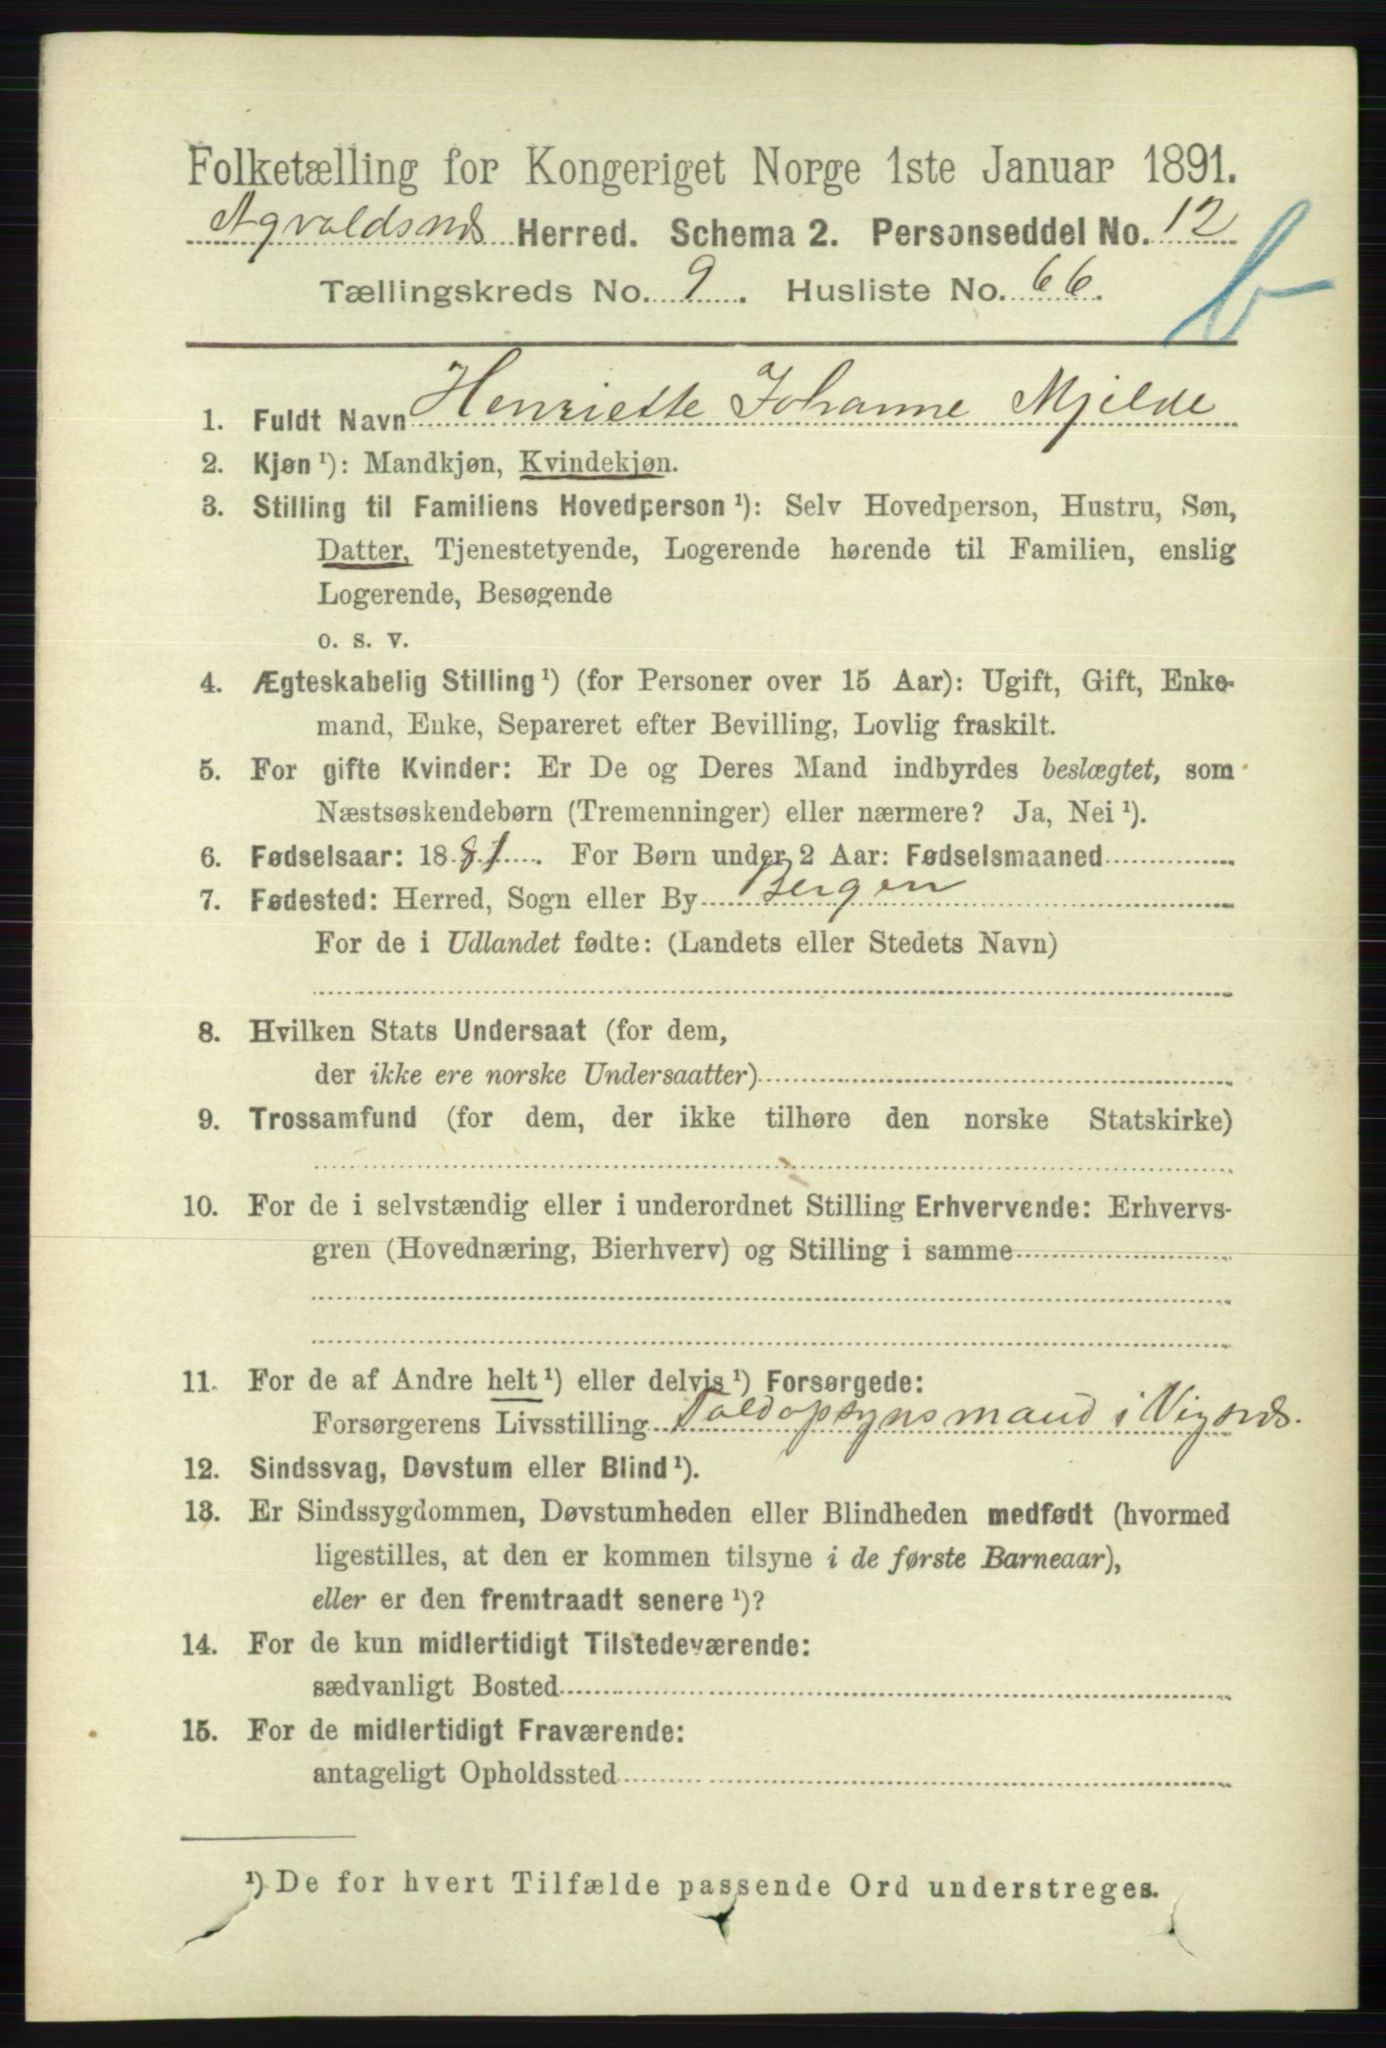 Folketælling for Kongeriget Norge 1ste Januar 1891.
Agvaldsnes Herred. Schema 2. Personseddel No. 12
b
Tællingskreds No. 9. Husliste No. 66.
1. Fuldt Navn Henriette Johanne Mjelde
2. Kjøn ¹): Mandkjøn, Kvindekjøn.
3. Stilling til Familiens Hovedperson ¹): Selv Hovedperson, Hustru, Søn,
Datter, Tjenestetyende, Logerende hørende til Familien, enslig
Logerende, Besøgende
o. s. v.
4. Ægteskabelig Stilling ¹) (for Personer over 15 Aar): Ugift, Gift, Enke-
mand, Enke, Separeret efter Bevilling, Lovlig fraskilt.
5. For gifte Kvinder: Er De og Deres Mand indbyrdes beslægtet, som
Næstsøskendebørn (Tremenninger) eller nærmere? Ja, Nei ¹).
6. Fødselsaar: 1881. For Børn under 2 Aar: Fødselsmaaned
7. Fødested: Herred, Sogn eller By Bergen
For de i Udlandet fødte: (Landets eller Stedets Navn)
8. Hvilken Stats Undersaat (for dem,
der ikke ere norske Undersaatter)
9. Trossamfund (for dem, der ikke tilhøre den norske Statskirke)
10. For de i selvstændig eller i underordnet Stilling Erhvervende: Erhvervs-
gren (Hovednæring, Bierhverv) og Stilling i samme
11. For de af Andre helt ¹) eller delvis ¹) Forsørgede:
Forsørgerens Livsstilling Toldopsynsmand i Vigsnes.
12. Sindssvag, Døvstum eller Blind ¹).
13. Er Sindssygdommen, Døvstumheden eller Blindheden medfødt (hvormed
ligestilles, at den er kommen tilsyne i de første Barneaar),
eller er den fremtraadt senere ¹)?
14. For de kun midlertidigt Tilstedeværende:
sædvanligt Bosted
15. For de midlertidigt Fraværende:
antageligt Opholdssted
¹) De for hvert Tilfælde passende Ord understreges.